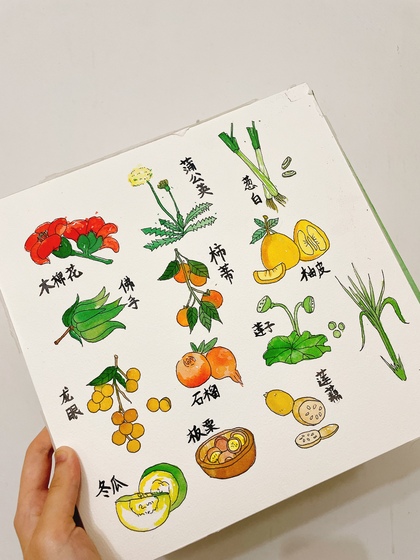 蒲公英
葱白
木棉花
佛手
柿蒂
柚皮
莲子
龙眼
石榴
莲藕
板栗
冬瓜